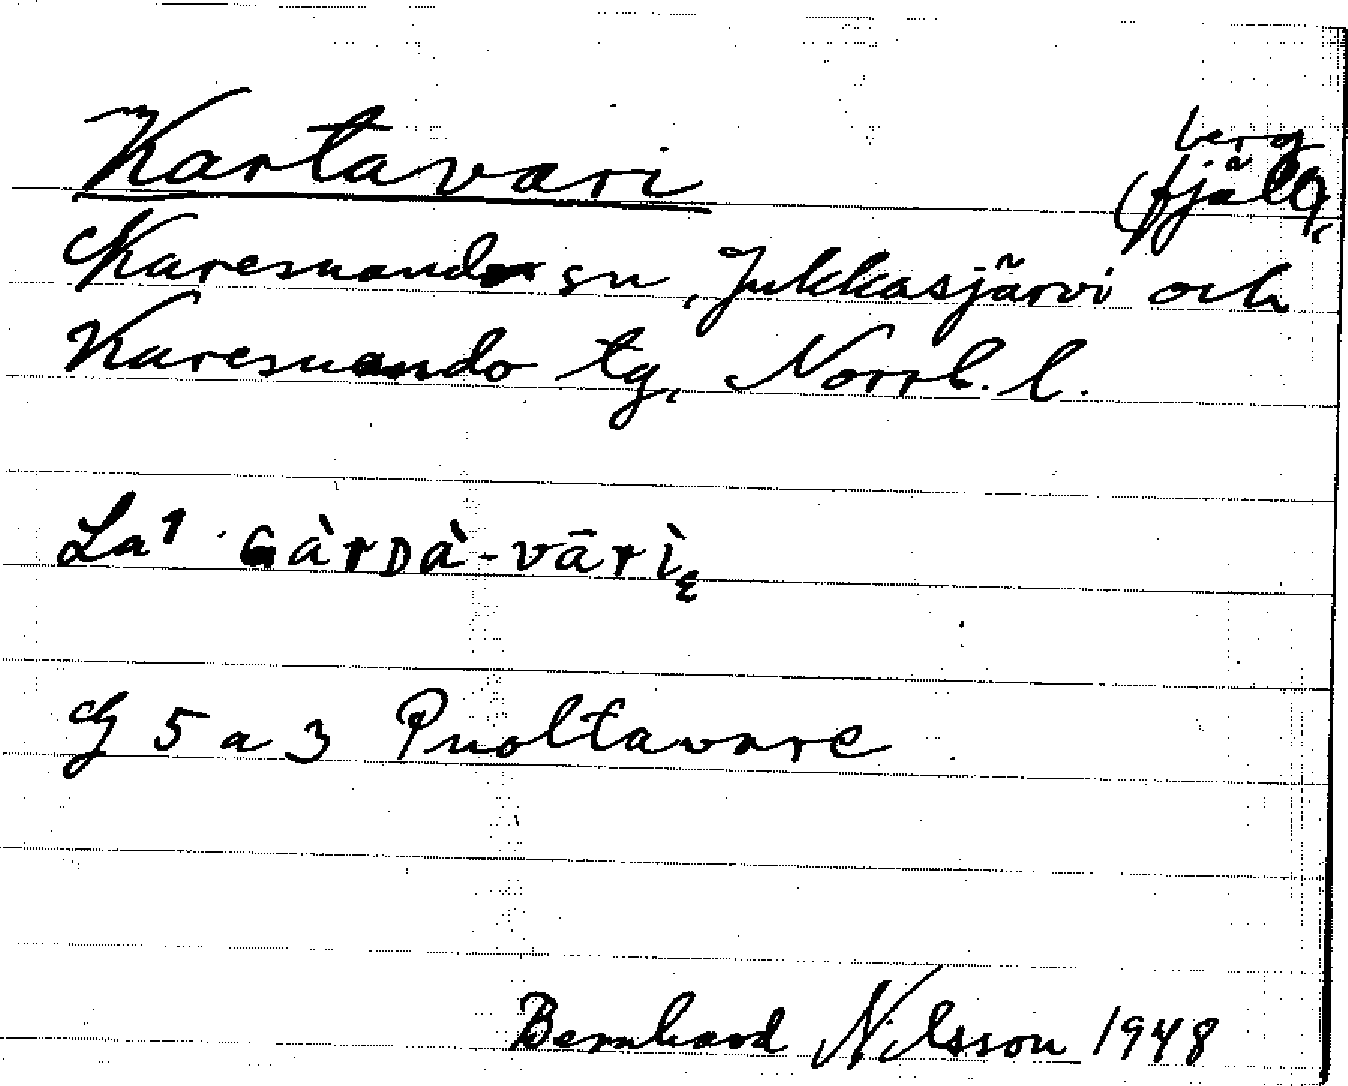 Kartavari
berg
(fjäll),
Karesuando sn, Jukkasjärvi och
Karesuando tg, Norrb. l.
La1 GàrDà-vārì
G 5 a 3 Puoltavare
Bernhard Nilsson 1948